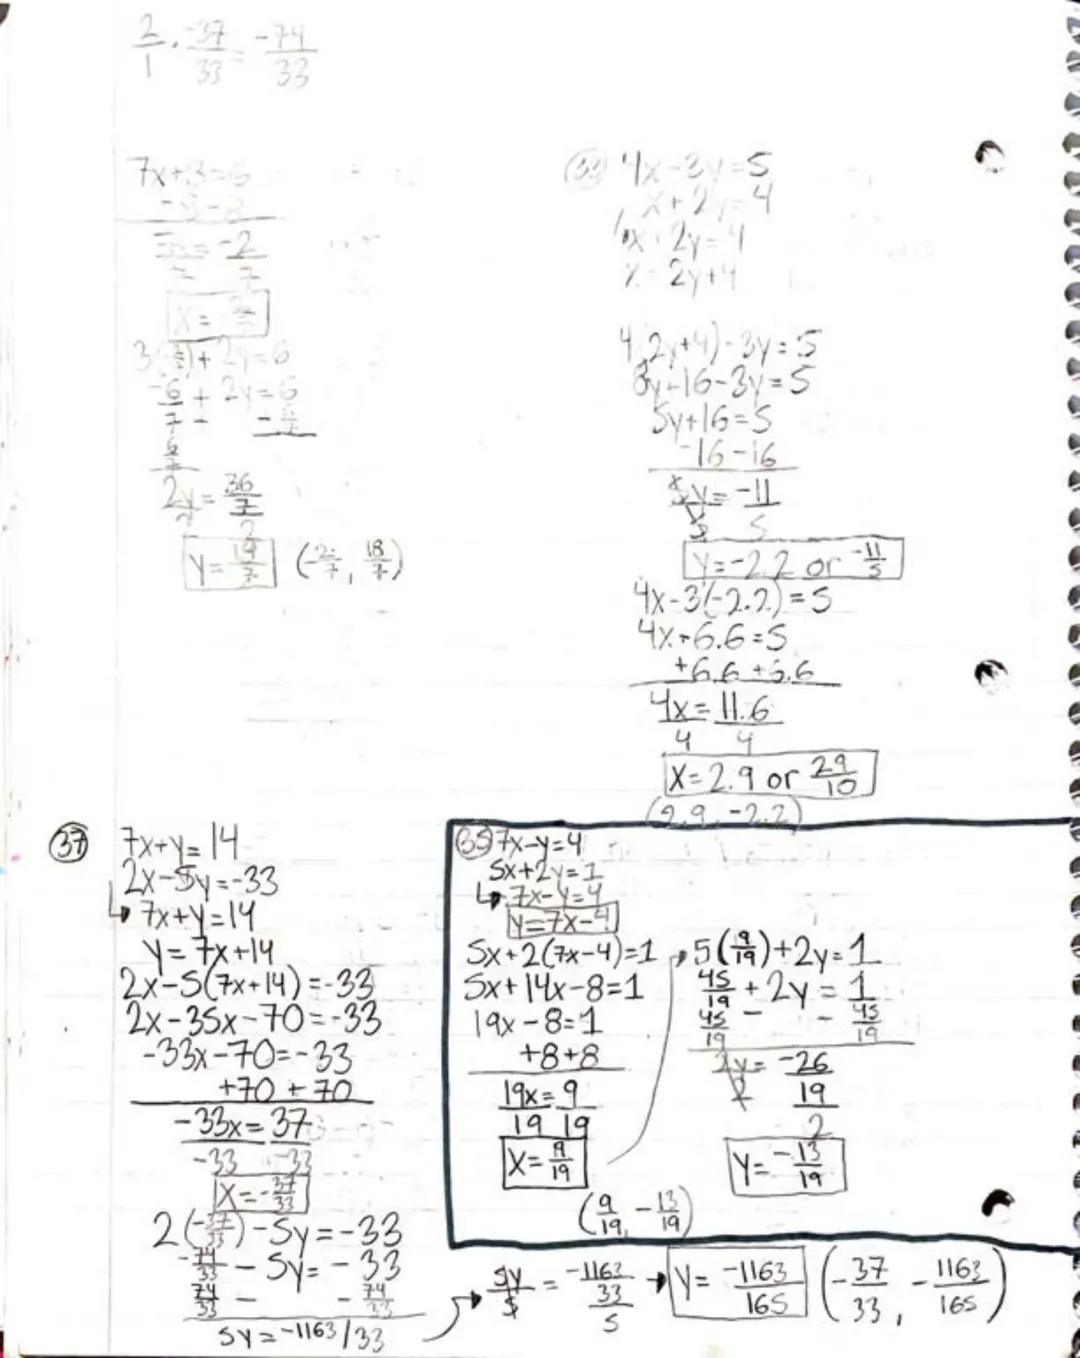 2/1 · -37/33 = -74/33
7x+3=
-2/7
X=
+ 2y=6
-6/7 + 2y=6
2y = 36/7
2
y = /7 ( /7, 18/7)
33 4x-3y=5
x+2y=4
x 2y=4
x = 2y+4
4(2y+4)-3y=5
8y+16-3y=5
5y+16=5
-16 -16
y = -11
5 5
y=-2.2 or -11/5
4x-3(-2.2)=5
4x+6.6=5
+6.6 +6.6
4x = 11.6
4 4
X=2.9 or 29/10
(2.9, -2.2)
37 7x+y=14
2x-5y=-33
↳ 7x+y=14
y=7x+14
2x-5(7x+14)=-33
2x-35x-70=-33
-33x-70=-33
+70 +70
-33x=37
-33 -33
X=-37/33
2(-37/33)-5y=-33
-74/33 - 5y = -33
74/33 - - 74/33
5y = -1163/33
5y/5 = -1163/33/5 → y = -1163/165 (-37/33, -1163/165)
35 7x-y=4
5x+2y=1
↳ 7x-y=4
y=7x-4
5x+2(7x-4)=1
5x+14x-8=1
19x-8=1
+8 +8
19x = 9
19 19
X=9/19
5(9/19)+2y=1
45/19 + 2y = 1
45/19 - - 45/19
2y/2 = -26/19/2
y=-13/19
(9/19, -13/19)